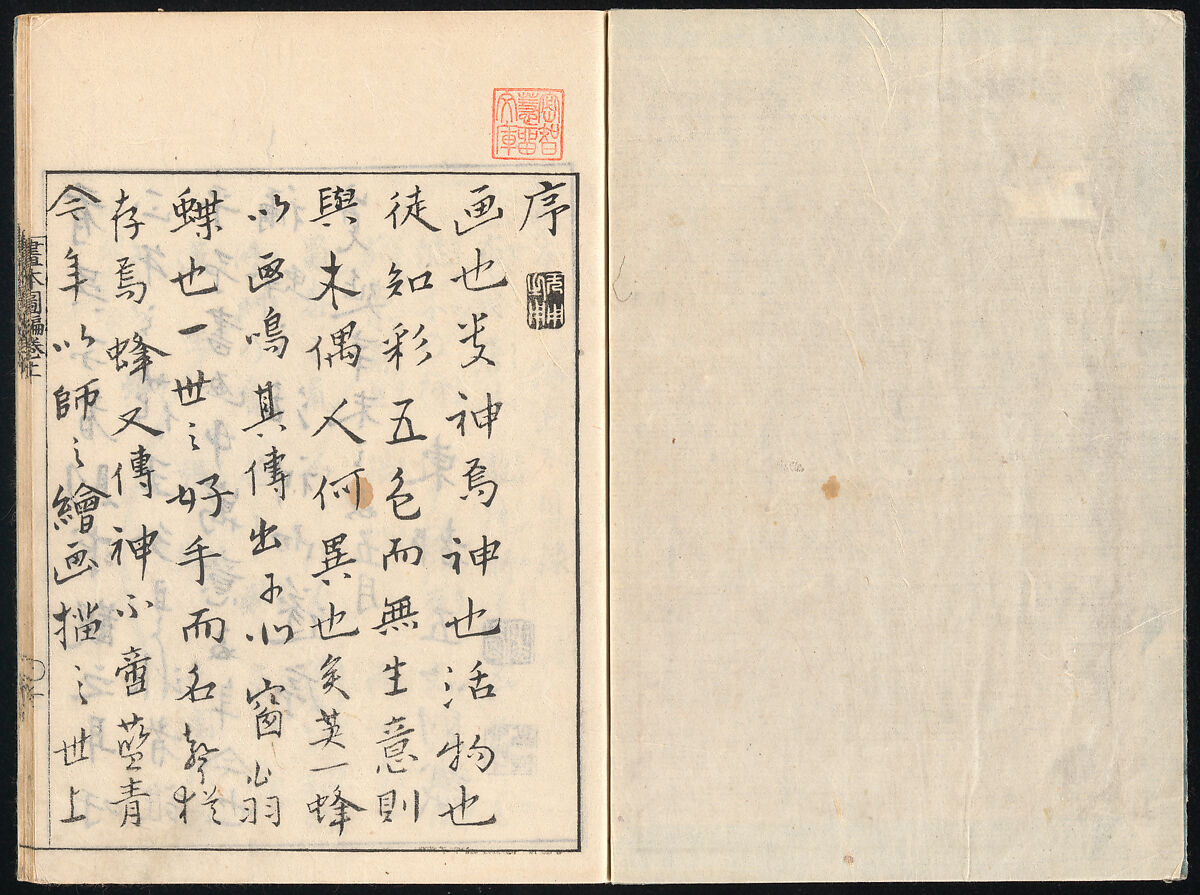 序
画也神焉神也活物也
徒知彩五色而無生意則
與木偶人何異也矣英一蜂
以画鳴其傳出于北窗翁
蝶也一世之好手而名聲猶
存焉蜂又傳神不啻藍青
今年以師之繪画描之世上
畫本圖編卷上
文庫